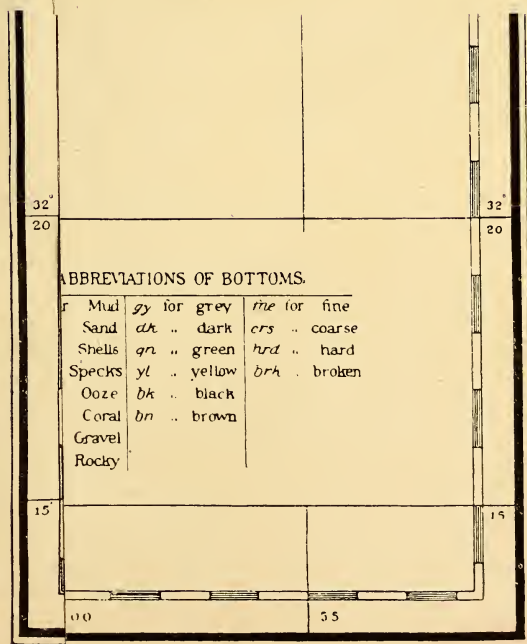 32° 32°
20 20
ABBREVIATIONS OF BOTTOMS.
r Mud gy for grey fne for fine
Sand dk „ dark crs „ coarse
Shells gn „ green hrd „ hard
Specks yl „ yellow brk „ broken
Ooze bk „ black
Coral bn „ brown
Gravel
Rocky
15' 15
00 55